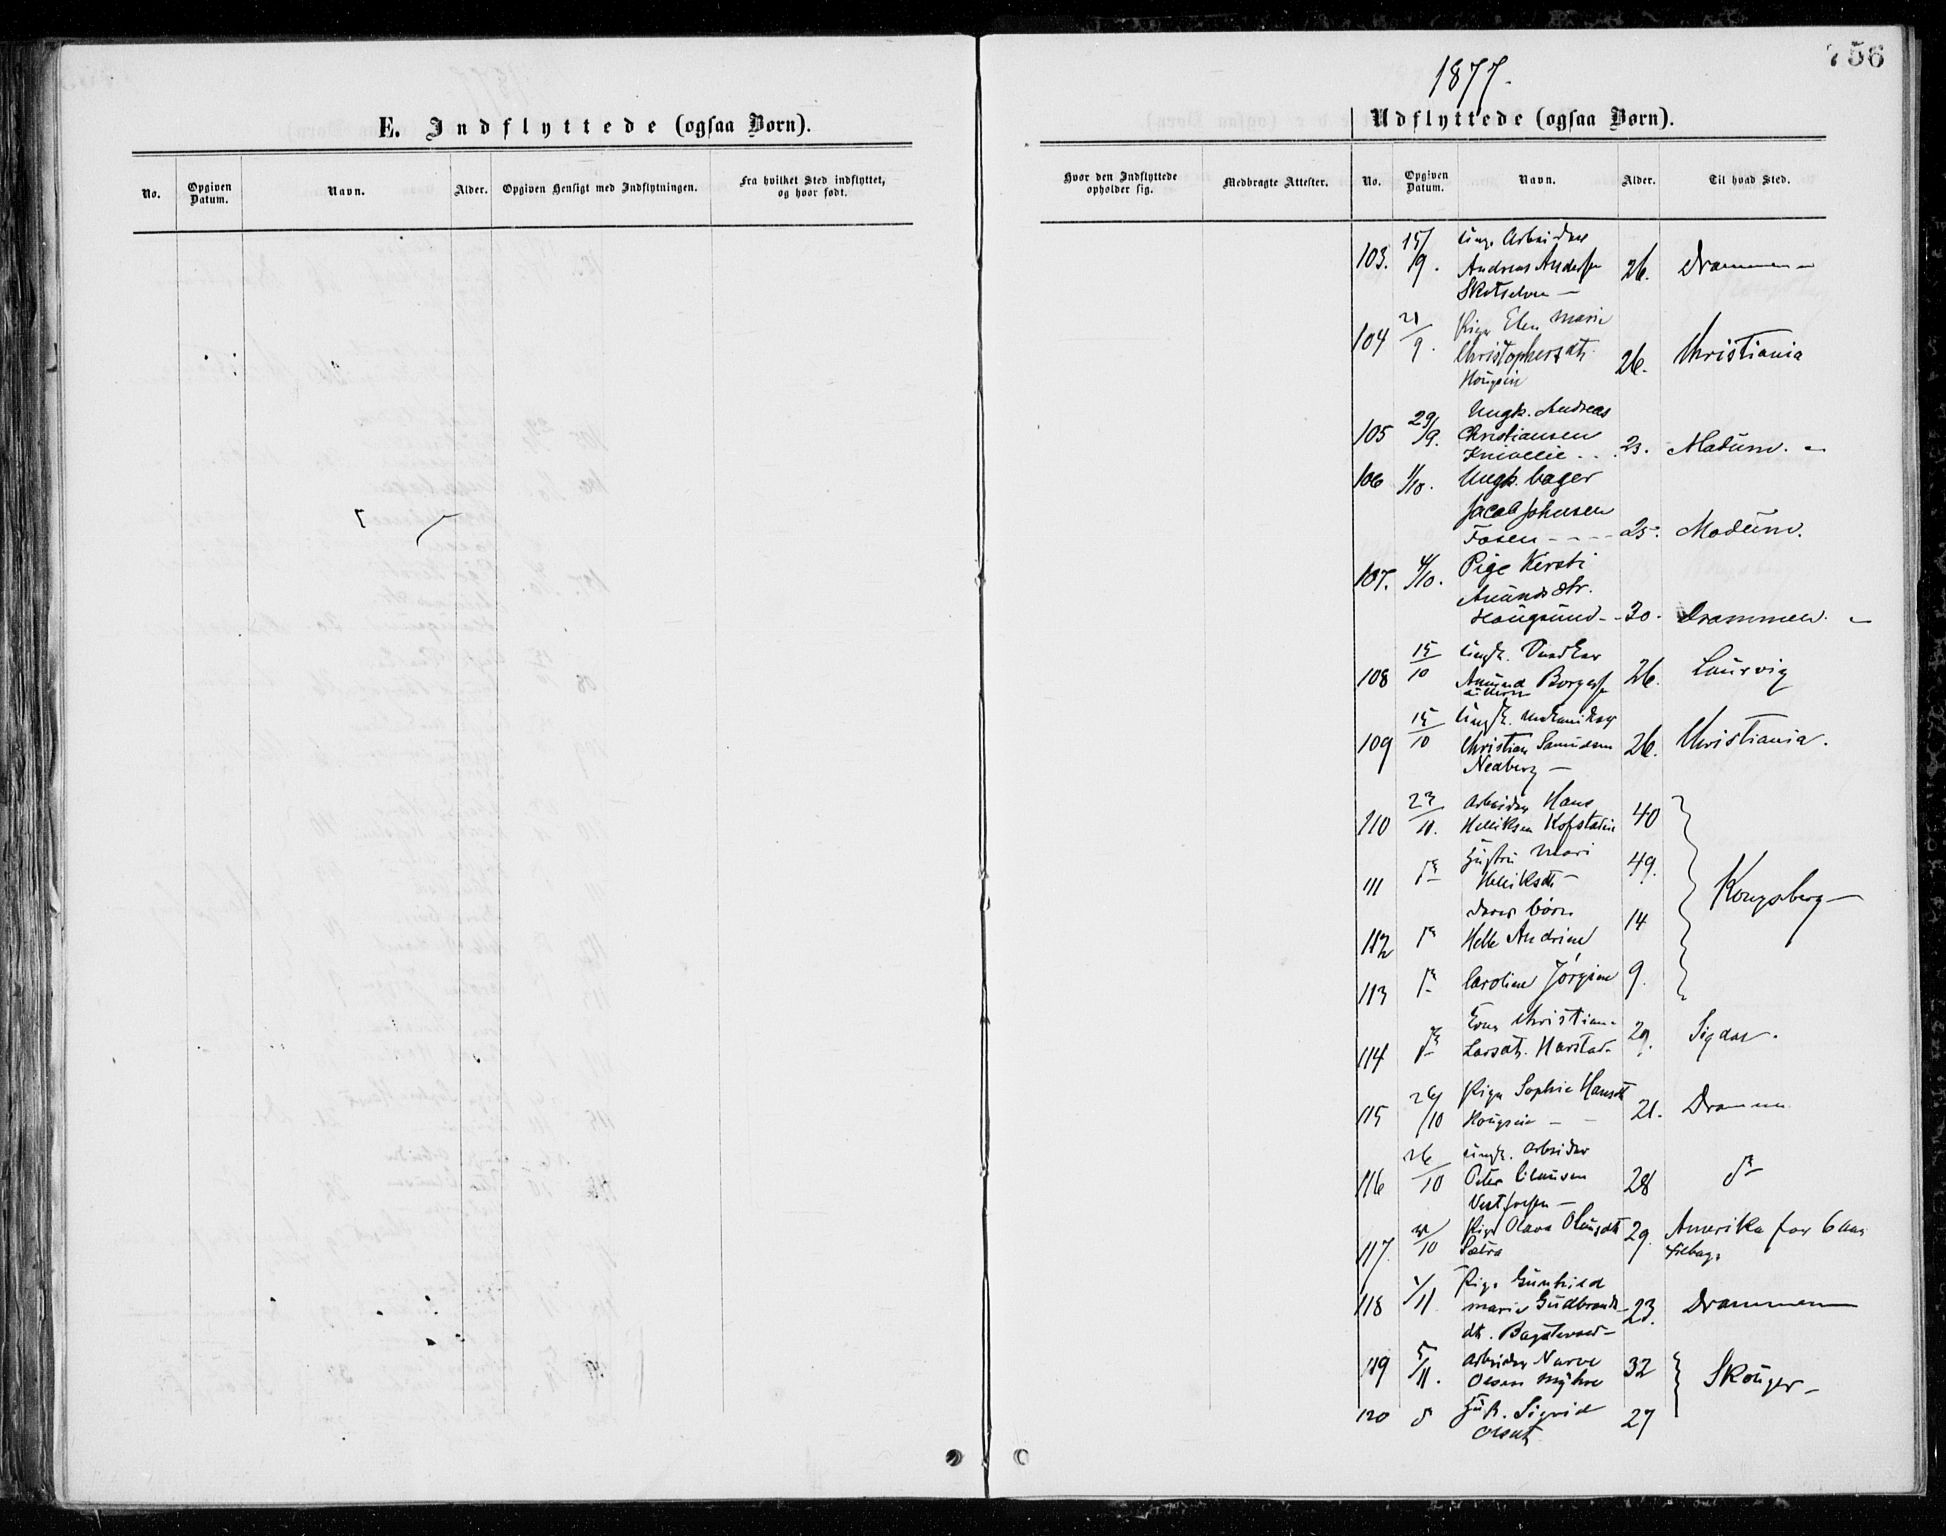 756
1877.
E. Indflyttede (ogsaa Børn).
Udflyttede (ogsaa Børn).
No.
Opgiven Datum.
Navn.
Alder.
Opgiven Hensigt med Indflytningen.
Fra hvilket Sted indflyttet, og hvor født.
Hvor den Indflyttede opholder sig.
Medbragte Attester.
No.
Opgiven Datum.
Navn.
Alder.
Til hvad Sted.
103. 15/9. Arbeider
Andreas Anders
Skotselven — 26. Drammen
104 21/9. Pige Elen Marie
Christophersdt.
Hougsun 26. Christiania
105 29/9. Ungk. Andreas
Christiansen
23. Modum.
106 1/10. Ungk. bager
Jacob Johnsen
Fosen - - - - 25. Modum.
107. 4/10. Pige Kersti
Amundsdtr.
Hougsund - - 30. Drammen.
108 15/10 Ungk.
Amund Borgers 26. Laurvig
109 15/10 Ungk.
Christian
Nedberg — 26. Christiania.
110 23/11. Arbeider Hans
Helliksen 40
111 Hustru Mari
Helliksdt — 49. Kongsberg —
deres børn
112 Helle Andrine 14
113 Caroline Jørgine 9.
114 Christian
Larsdt. Harstad 29. Sigdal.
115 26/10 Pige Sophie Hansdt
Hougsun — 21. Drammen
116 26/10 Ungk. Arbeider
Peter Clausen
Vestfossen — 28
117. /10 Pige Olava Olausdt
Sætra 29. Amerika for 6 Aar
tilbage
118 /11. Pige Gunhild
Marie Gudbrands
dt. 23. Drammen
119 5/11. Arbeider Narve
Olsen Myhre 32 Skouger —
120 Hust. Sigrid
Olsdt 27